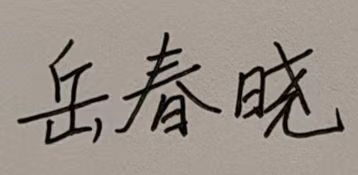 岳春晓